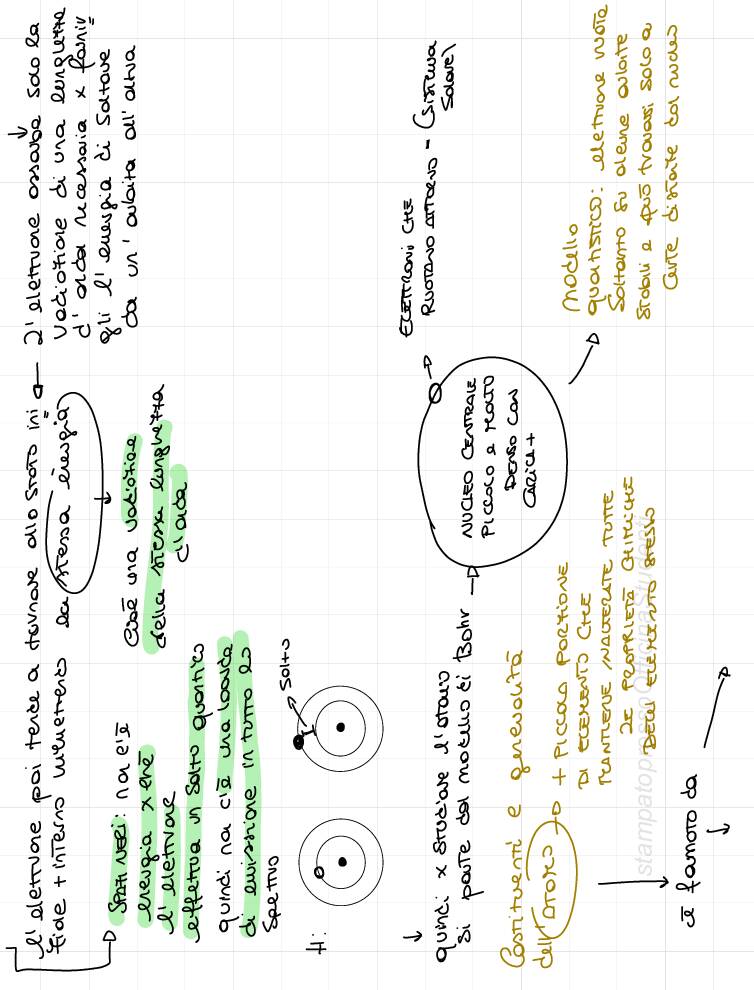 l'elettrone poi tende a tornare allo stato ini
L'elettrone assorbe solo la
radiazione di una lunghezza
d'onda necessaria x forni
gli l'energia di saltare
da un'orbita all'altra
la stessa energia
cioè una radiazione
della stessa lunghezza
d'onda
SPAZI NERI: non c'è
energia xchè
l'elettrone
effettua un salto quantico
quindi non c'è una banda
di emissione in tutto lo
spettro
H:
salto
quindi x studiare l'atomo
si parte dal modello di Bohr
NUCLEO CENTRALE
PICCOLO e MOLTO
DENSO CON
CARICA +
ELETTRONI CHE
RUOTANO ATTORNO - (SISTEMA
SOLARE)
modello
quantistico: elettrone ruota
soltanto su alcune orbite
stabili e può trovarsi solo a
certe distanze dal nucleo
Costituenti e generalità
dell'ATOMO
+ PICCOLA PORZIONE
DI ELEMENTO CHE
MANTIENE INALTERATE TUTTE
LE PROPRIETÀ CHIMICHE
DELL'ELEMENTO STESSO
è formato da